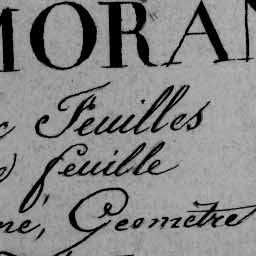 MORAN
Feuilles
feuille
Geomètre